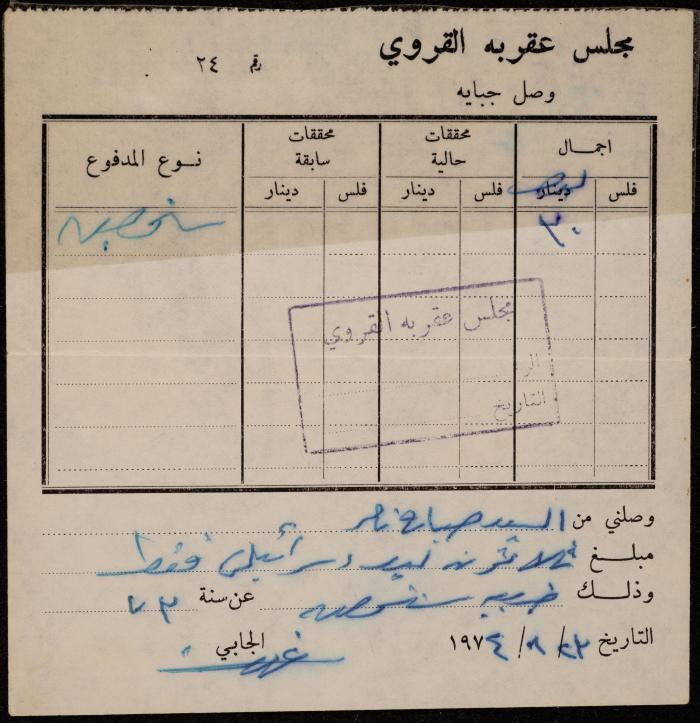 مجلس عقربه القروي
رقم ٢٤
وصل جبايه
اجمال
محققات حالية
محققات سابقة
نوع المدفوع
فلس دينار فلس دينار فلس دينار
٣٠ شخصيه
مجلس عقربه القروي
الر
التاريخ
وصلني من السيد
مبلغ ثلاثون ليره اسرائيلي فقط
وذلك ضريبه شخصيه عن سنة ٧٣
التاريخ / ٨ / ١٩٧٤
الجابي